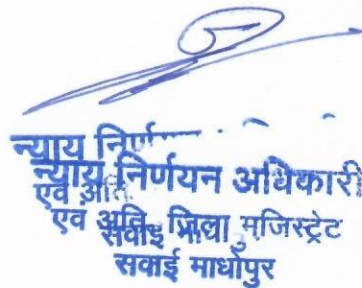 न्याय निर्ण
न्याय निर्णयन अधिकारी
एवं अति.
एवं अति. जिला मजिस्ट्रेट
सवाई मा
सवाई माधोपुर